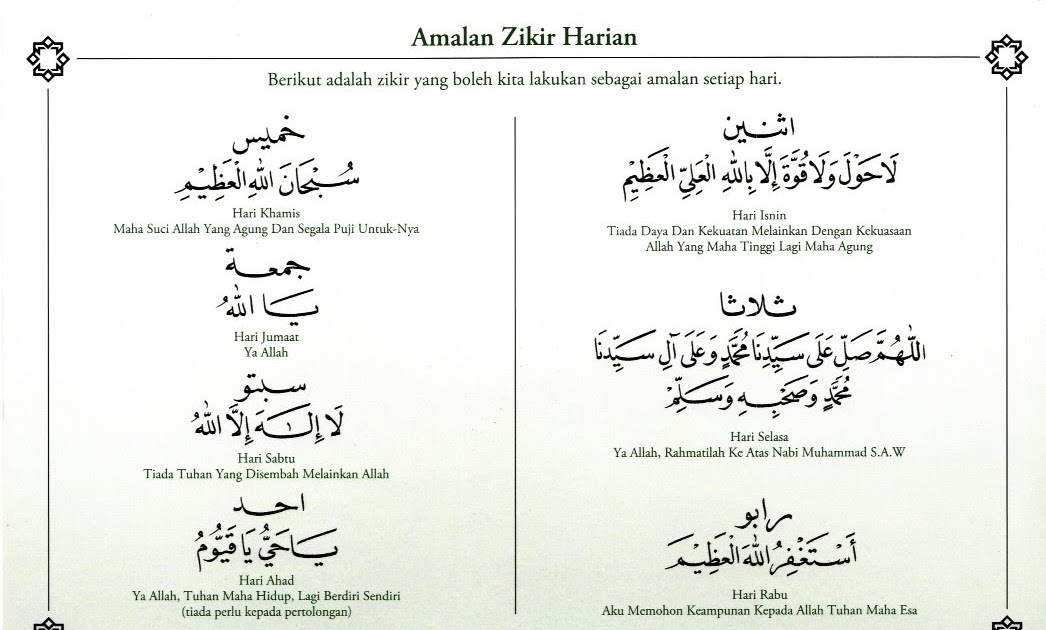 Amalan Zikir Harian
Berikut adalah zikir yang boleh kita lakukan sebagai amalan setiap hari.
اثنين
لَا حَوْلَ وَلَا قُوَّةَ إِلَّا بِاللهِ الْعَلِيِّ الْعَظِيْمِ
Hari Isnin
Tiada Daya Dan Kekuatan Melainkan Dengan Kekuasaan
Allah Yang Maha Tinggi Lagi Maha Agung
ثلاثا
اللّٰهُمَّ صَلِّ عَلَى سَيِّدِنَا مُحَمَّدٍ وَعَلَى آلِ سَيِّدِنَا
مُحَمَّدٍ وَصَحْبِهِ وَسَلِّمْ
Hari Selasa
Ya Allah, Rahmatilah Ke Atas Nabi Muhammad S.A.W
رابو
أَسْتَغْفِرُ اللهَ الْعَظِيْمَ
Hari Rabu
Aku Memohon Keampunan Kepada Allah Tuhan Maha Esa
خميس
سُبْحَانَ اللهِ الْعَظِيْمِ
Hari Khamis
Maha Suci Allah Yang Agung Dan Segala Puji Untuk-Nya
جمعة
يَا اللهُ
Hari Jumaat
Ya Allah
سبتو
لَا إِلَٰهَ إِلَّا اللهُ
Hari Sabtu
Tiada Tuhan Yang Disembah Melainkan Allah
احد
يَا حَيُّ يَا قَيُّوْمُ
Hari Ahad
Ya Allah, Tuhan Maha Hidup, Lagi Berdiri Sendiri
(tiada perlu kepada pertolongan)